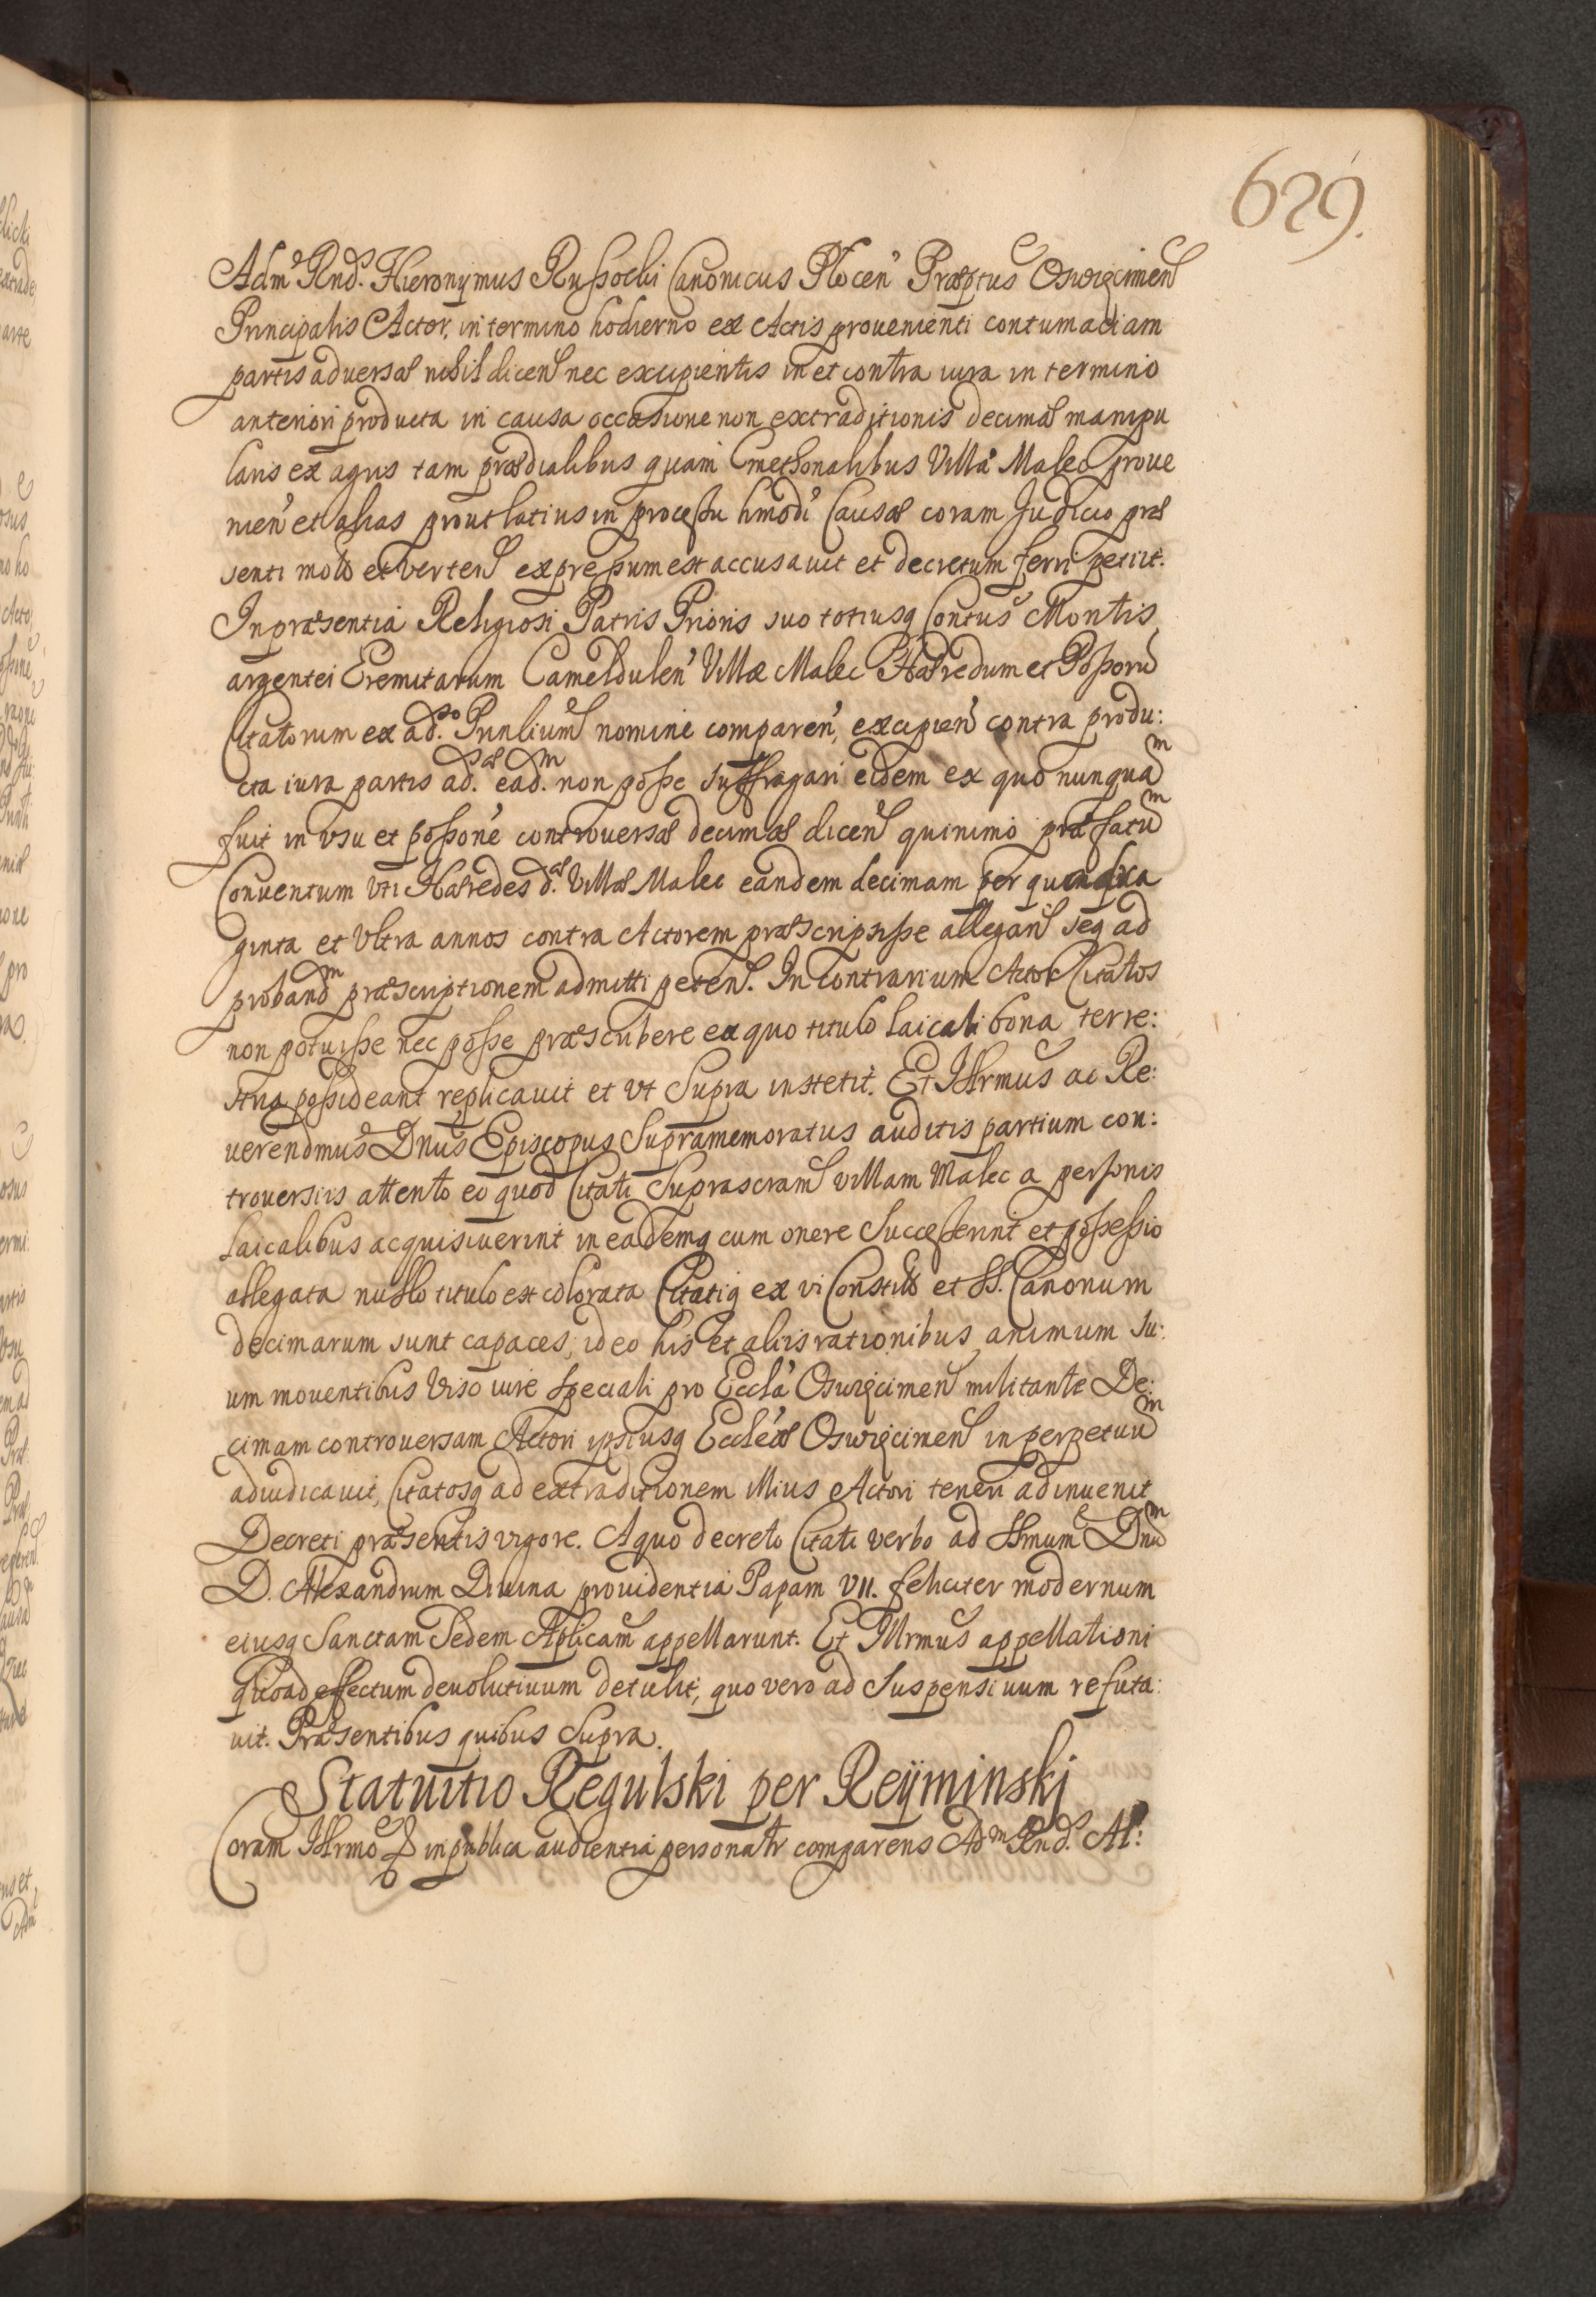 629.
Adm. Rnd. Hieronymus Rußocki Canonicus Plocen. Præptus Oswięcimen
Principalis Actor, in termino hodierno ex Actis prouenienti contumaciam
partis aduersæ nihil dicen nec excipientis in et contra iura in termino
anteriori producta in causa occasione non extraditionis decimæ manipu
laris ex agris tam prædialibus quam Cmethonalibus Villæ Malec proue
nien et alias prout latius in proceßu hmodi Causæ coram Judicio præ
senti moto et verten expreßum est accusauit et decretum ferri petiit.
In præsentia Religiosi Patris Prioris suo totiusq Contus Montis
argentei Eremitarum Cameldulen Villæ Malec Hæredum et Poßorū
Citatorum ex ad.so Prinlium nomine comparen, excipien contra produ:
cta iura partis ad.sæ ead.m non poße suffragari eidem ex quo nunquam
fuit in vsu et poßone controuersæ decimæ dicen quinimo præfatum
Conuentum vti Hæredes d.æ Villæ Malec eandem decimam per quadra
ginta et vltra annos contra Actorem præscripsiße allegan seq ad
proband.m præscriptionem admitti peten. In contrarium Actor Citatos
non potuiße nec poße præscribere ex quo titulo laicali bona terre:
stria poßideant replicauit et vt Supra institit. Et Illrmus ac Re:
uerendmus Dnus Episcopus Supramemoratus auditis partium con:
trouersiis attento eo quod Citati Suprascram villam Malec a personis
laicalibus acquisiuerint in eademq cum onere Succeßerint et poßeßio
allegata nullo titulo est colorata Citatiq ex vi Constit et SS. Canonum
decimarum sunt capaces, ideo his et aliis rationibus animum su:
um mouentibus viso iure speciali pro Eccla Oswięcimen militante De:
cimam controuersam Actori ipsiusq Eccleæ Oswięcimen in perpetuum
adiudicauit, Citatosq ad extraditionem illius Actori teneri adinuenit
Decreti præsentis vigore. A quo decreto Citati verbo ad SSmum Dnum
D. Alexandrum Diuina prouidentia Papam VII. feliciter modernum
eiusq Sanctam Sedem Aplicam appellarunt. Et Illrmus appellationi
quoad effectum deuolutiuum detulit, quo vero ad Suspensiuum refuta:
uit. Præsentibus quibus Supra.
Statuitio Regulski per Reÿminski
Coram Illrmo in publica audientia personalr comparens Adm Rnd. Al: